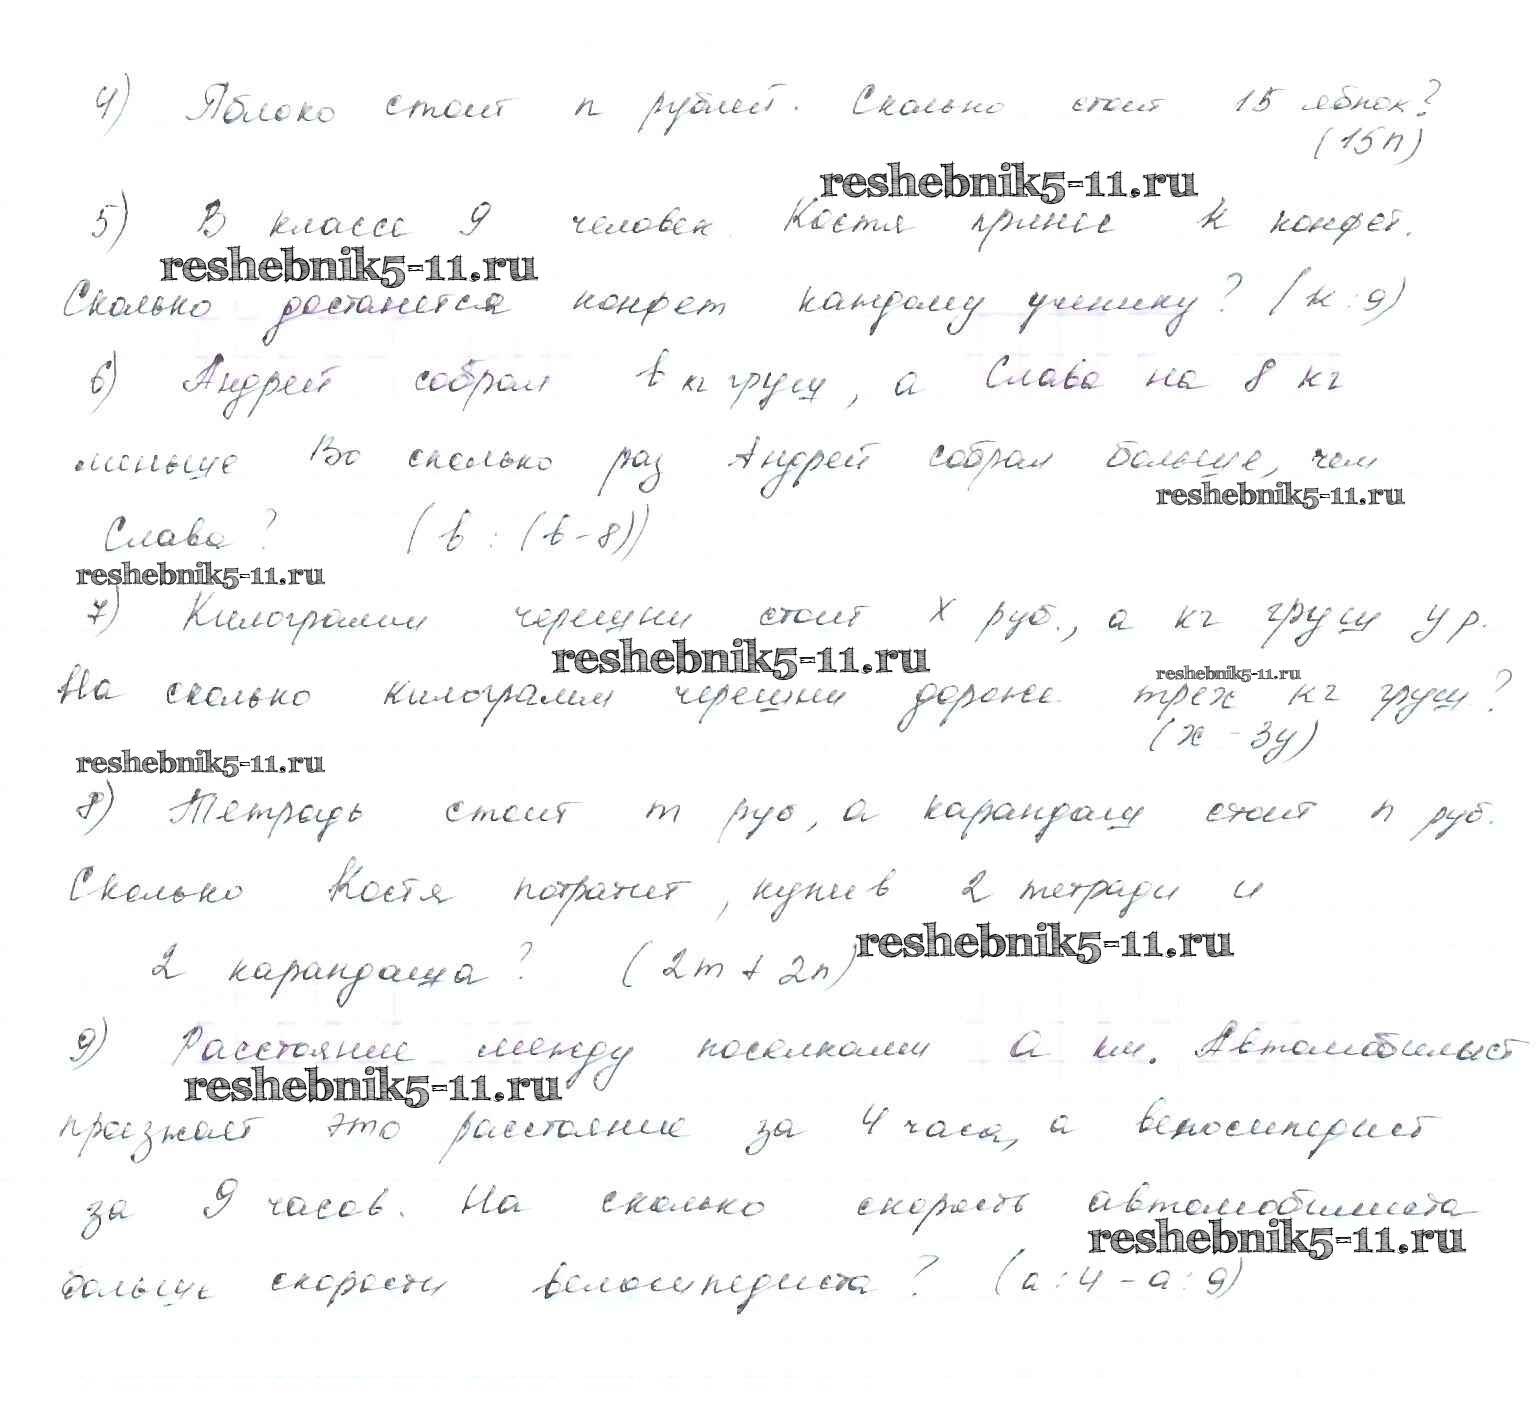 4) Яблоко стоит n рублей. Сколько стоит 15 яблок?
(15n)
reshebnik5-11.ru
5) В классе 9 человек. Костя принес k конфет.
reshebnik5-11.ru
Сколько достанется конфет каждому ученику? (k : 9)
6) Андрей собрал b кг груш, а Слава на 8 кг
меньше Во сколько раз Андрей собрал больше, чем
reshebnik5-11.ru
Слава? (b : (b - 8))
reshebnik5-11.ru
7) Килограмм черешни стоит x руб., а кг груш y р.
reshebnik5-11.ru
reshebnik5-11.ru
На сколько килограмм черешни дороже трех кг груш?
(x - 3y)
reshebnik5-11.ru
8) Тетрадь стоит m руб, а карандаш стоит n руб.
Сколько Костя потратит, купив 2 тетради и
reshebnik5-11.ru
2 карандаша? (2m + 2n)
9) Расстояние между поселками a км. Автомобилист
reshebnik5-11.ru
проезжает это расстояние за 4 часа, а велосипедист
за 9 часов. На сколько скорость автомобилиста
reshebnik5-11.ru
больше скорости велосипедиста? (a : 4 - a : 9)